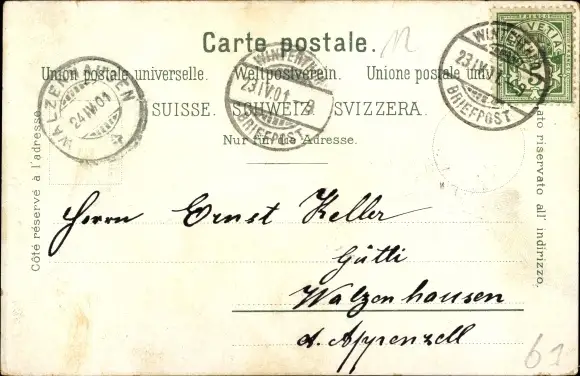 Carte postale.
Union postale universelle. Weltpostverein. Unione postale
SUISSE. SCHWEIZ. SVIZZERA.
Nur für die Adresse.
Côté réservé à l'adresse
riservato all' indirizzo.
WALZENHAUSEN
24.IV.01
WINTERTHUR
23.IV.01 8
BRIEFPOST
WINTERTHUR
23.IV.
BRIEFPOST
HELVETIA
5
Herrn Ernst Keller
Gütli
Walzenhausen
Ct. Appenzell
61